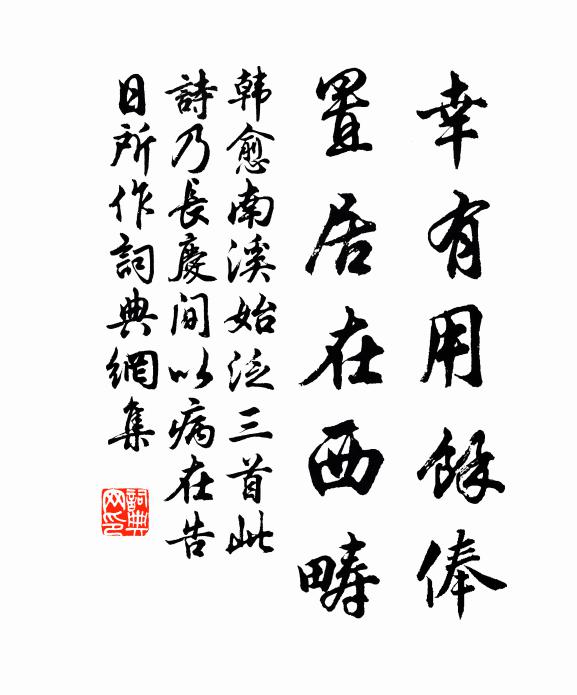 幸有用餘俸
置居在西疇
韩愈南溪始泛三首此
詩乃長慶间以病在告
日所作詞典網集
詞典網印